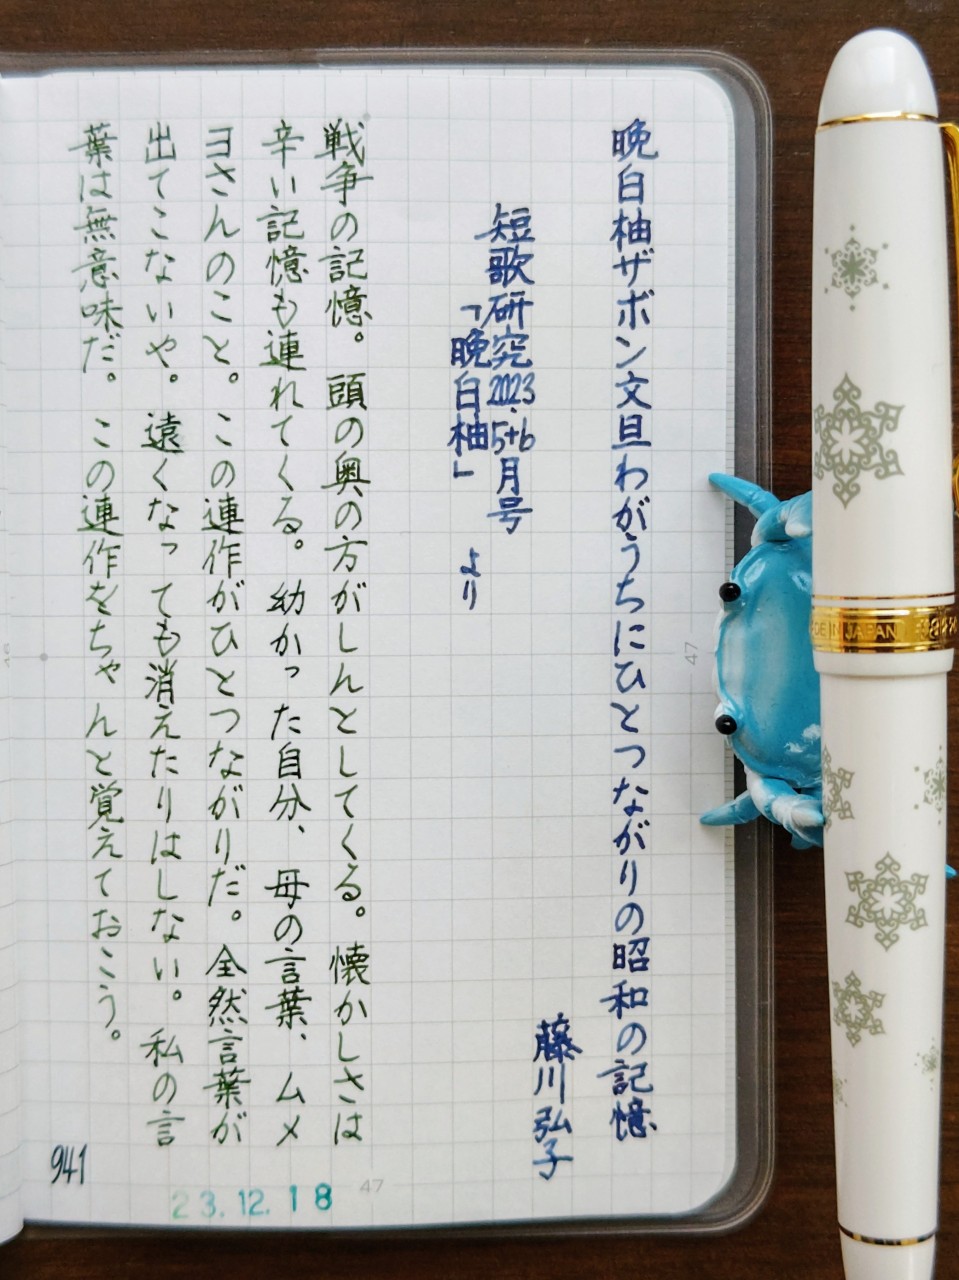 晩白柚ザボン文旦わがうちにひとつながりの昭和の記憶
藤川弘子
短歌研究2023.5+6月号
「晩白柚」より
戦争の記憶。頭の奥の方がしんとしてくる。懐かしさは
辛い記憶も連れてくる。幼かった自分、母の言葉、ムメ
ヨさんのこと。この連作がひとつながりだ。全然言葉が
出てこないや。遠くなっても消えたりはしない。私の言
葉は無意味だ。この連作をちゃんと覚えておこう。
941
23.12.18
47
47
MADE IN JAPAN